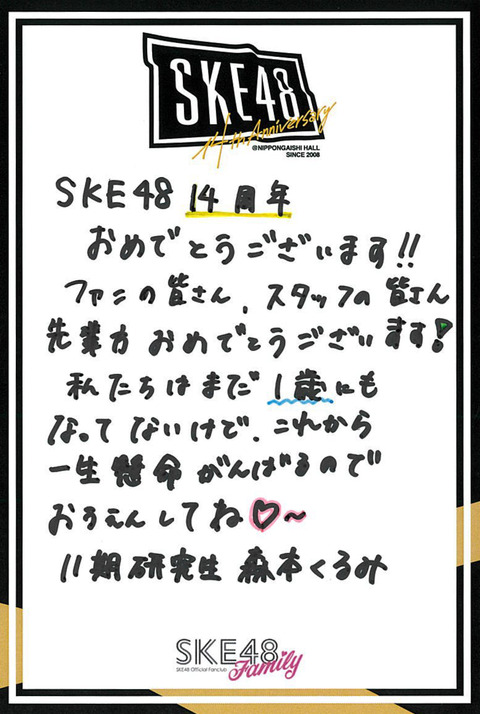 SKE48
14th Anniversary
@NIPPONGAISHI HALL
SINCE 2008
SKE48 14周年
おめでとうございます!!
ファンの皆さん、スタッフの皆さん
先輩方 おめでとうございます!
私たちはまだ1歳にも
なってないけど、これから
一生懸命がんばるので
おうえんしてね♡~
11期研究生 森本くるみ
SKE48
SKE48 Official Fanclub
Family